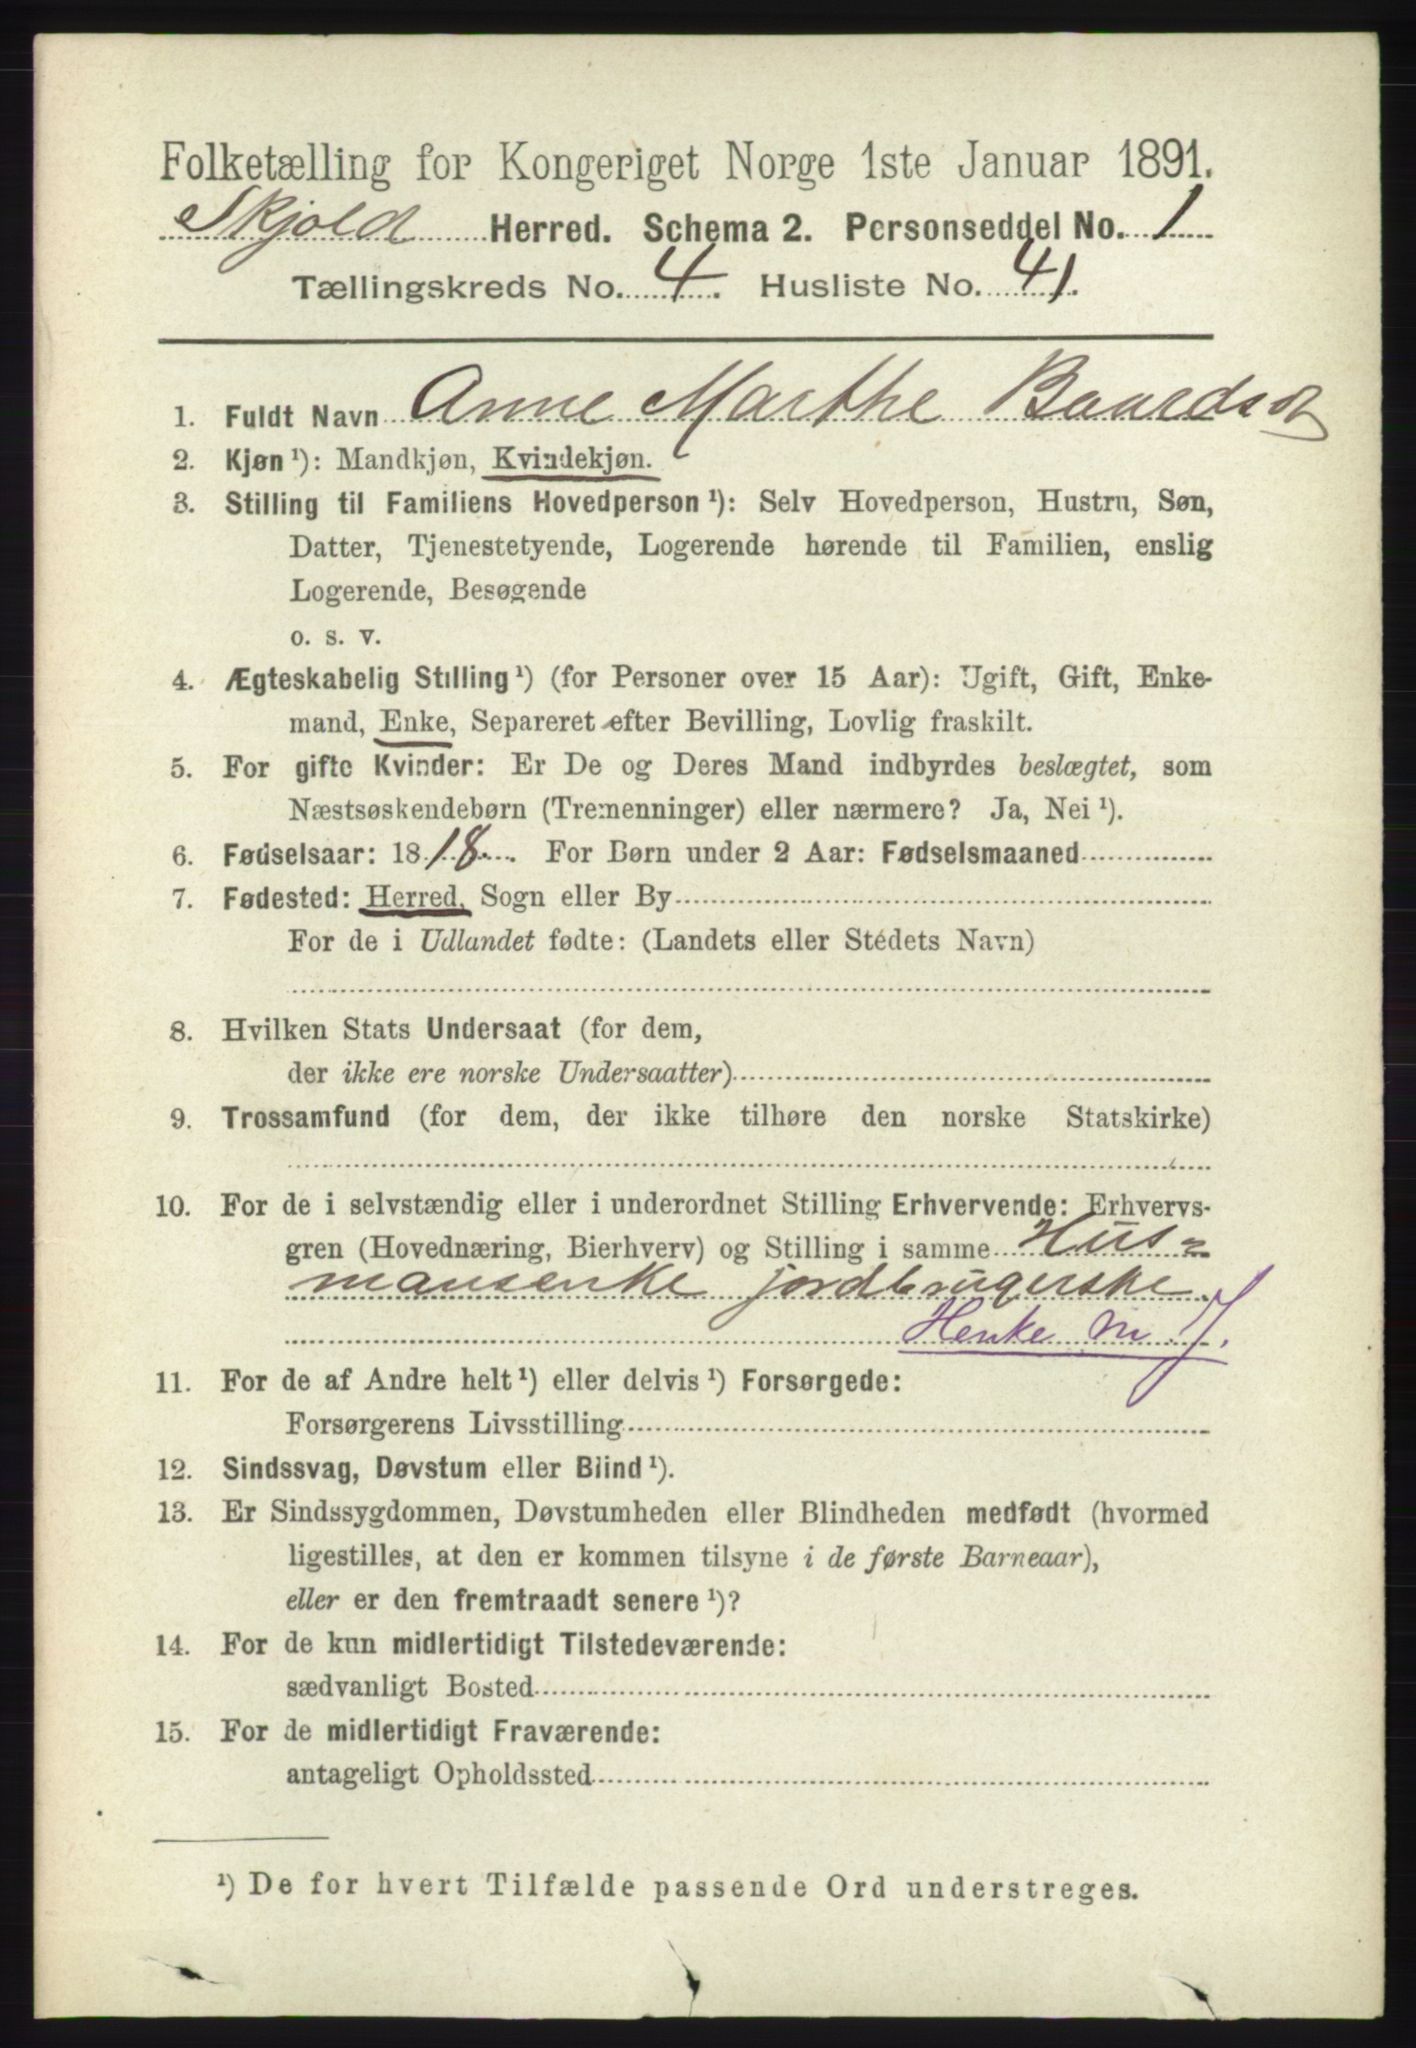 Folketælling for Kongeriget Norge 1ste Januar 1891.
Skjold Herred. Schema 2. Personseddel No. 1
Tællingskreds No. 4. Husliste No. 41.
1. Fuldt Navn Anne Marthe Baardsdt
2. Kjøn ¹): Mandkjøn, Kvindekjøn.
3. Stilling til Familiens Hovedperson ¹): Selv Hovedperson, Hustru, Søn,
Datter, Tjenestetyende, Logerende hørende til Familien, enslig
Logerende, Besøgende
o. s. v.
4. Ægteskabelig Stilling ¹) (for Personer over 15 Aar): Ugift, Gift, Enke-
mand, Enke, Separeret efter Bevilling, Lovlig fraskilt.
5. For gifte Kvinder: Er De og Deres Mand indbyrdes beslægtet, som
Næstsøskendebørn (Tremenninger) eller nærmere? Ja, Nei ¹).
6. Fødselsaar: 1818. For Børn under 2 Aar: Fødselsmaaned
7. Fødested: Herred, Sogn eller By
For de i Udlandet fødte: (Landets eller Stédets Navn)
8. Hvilken Stats Undersaat (for dem,
der ikke ere norske Undersaatter)
9. Trossamfund (for dem, der ikke tilhøre den norske Statskirke)
10. For de i selvstændig eller i underordnet Stilling Erhvervende: Erhvervs-
gren (Hovednæring, Bierhverv) og Stilling i samme Hus=
mansenke jordbrugerske
Henke m. J.
11. For de af Andre helt ¹) eller delvis ¹) Forsørgede:
Forsørgerens Livsstilling
12. Sindssvag, Døvstum eller Blind ¹).
13. Er Sindssygdommen, Døvstumheden eller Blindheden medfødt (hvormed
ligestilles, at den er kommen tilsyne i de første Barneaar),
eller er den fremtraadt senere ¹)?
14. For de kun midlertidigt Tilstedeværende:
sædvanligt Bosted
15. For de midlertidigt Fraværende:
antageligt Opholdssted
¹) De for hvert Tilfælde passende Ord understreges.